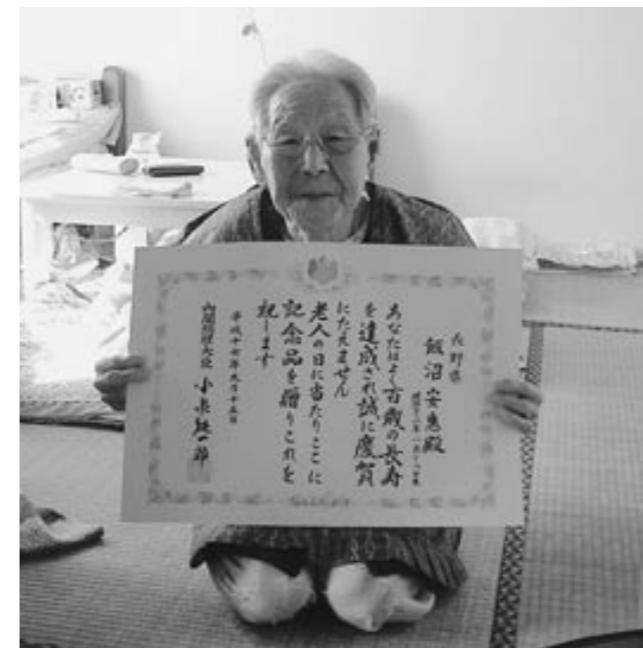 長野県
飯沼安惠殿
あなたはよく百歳の長寿
を達成され誠に慶賀
にたえません
老人の日に当たりここに
記念品を贈りこれを
祝します
平成十七年九月十五日
内閣総理大臣 小泉純一郎